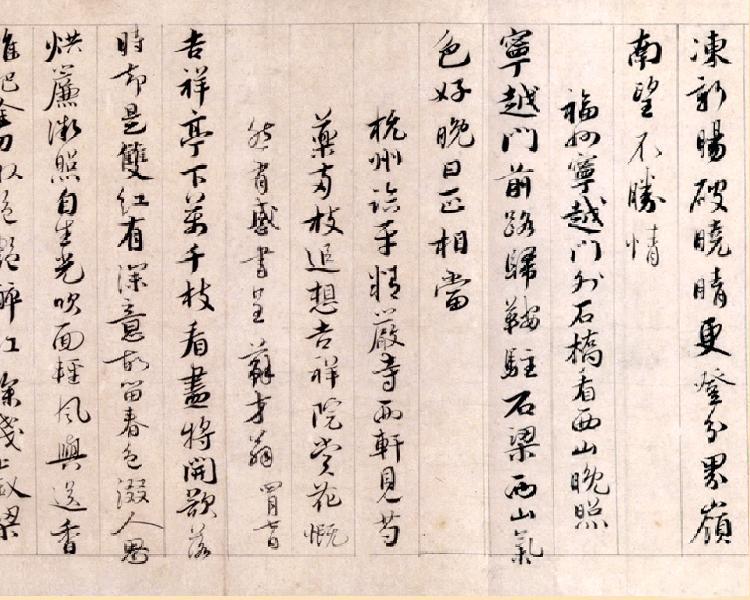 凍新暘破曉晴更登分界嶺
南望不勝情
福州寧越門外石橋看西山晚照
寧越門前路歸鞍駐石梁西山氣
色好晚日正相當
杭州臨平精嚴寺西軒見芍
藥兩枝追想吉祥院賞花慨
然有感書呈蘇才翁 四月七日
吉祥亭下萬千枝看盡將開欲落
時却是雙紅有深意故留春色綴人思
烘簾微照自生光吹面輕風與送香